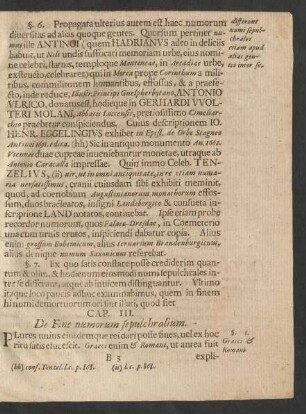 §. 6. Propagata ulterius autem est hæc numorum
diversitas ad alias quoque gentes. Quorsum pertinet nu-
mus ille ANTINOI (quem HADRIANUS adeo in deliciis
habuit, ut Nili undis suffocati memoriam urbe, ejus nomine
celebri, statuis, temploque Mantineæ, in Arcadiæ urbe,
exstructo, celebraret) qui in Morea prope Corinthum a mili-
tibus, commilitonem humantibus, effossus, & a præfe-
cto, inde reduce, Illustr. Principi Guelpherbytano, ANTONIO
ULRICO, donatus est, hodieque in GERHARDI WOL-
TERI MOLANI, Abbatis Loccensis, pretiosissimo Cimeliar-
cheo præbetur conspiciendus. Cujus descriptionem JO.
HENR. EGGELINGIUS exhibet in Epist. de Orbe Stagneo
Antinoi 1691. edita. (hh) Sic in antiquo monumento An. 1662.
Viennæ duæ cupreæ inveniebantur monetæ, utraque ab
Aurelio Caracalla impressæ. Quin immo Celeb. TEN-
ZELIUS, (ii) vir, ut in omni antiquitate, in re etiam numa-
ria versatissimus, cranii cujusdam sibi exhibiti meminit,
quod, ad coenobium Augustinianorum monachorum effos-
sum, duos bracteatos, insigni Landsbergico & consueta in-
scriptione LAND notatos, continebat. Ipse etiam probe
recordor numorum, quos Palæo-Dresdæ, in Coemeterio
unacum urnis erutos, inspiciendi dabatur copia. Alius
enim grossum Bohemicum, alius ternarium Brandenburgicum,
alius denique numum Saxonicum referebat.
§. 7. Ex quo satis constare posse crediderim quan-
tum & olim, & hodienum ejusmodi numi sepulchrales in-
ter se differant, atque ab invicem distinguantur. Ultimo
itaque loco paucis adhuc examinabimus, quem in finem
hi numi demortuorum mori fuerint illati, quod fiet
CAP. III.
De Fine numorum sepulchralium.
PLures unius ejusdemque rei dari posse fines, vel ex hoc
ritu satis elucescit. Græci enim & Romani, ut antea fuit
B 3
expli-
(hh) conf. Tenzel. l. c. p. 161. (ii) l. c. p. 161.
differunt
numi sepul-
chrales
etiam apud
alias gen-
tes inter se.
§. 1.
Græci &
Romani